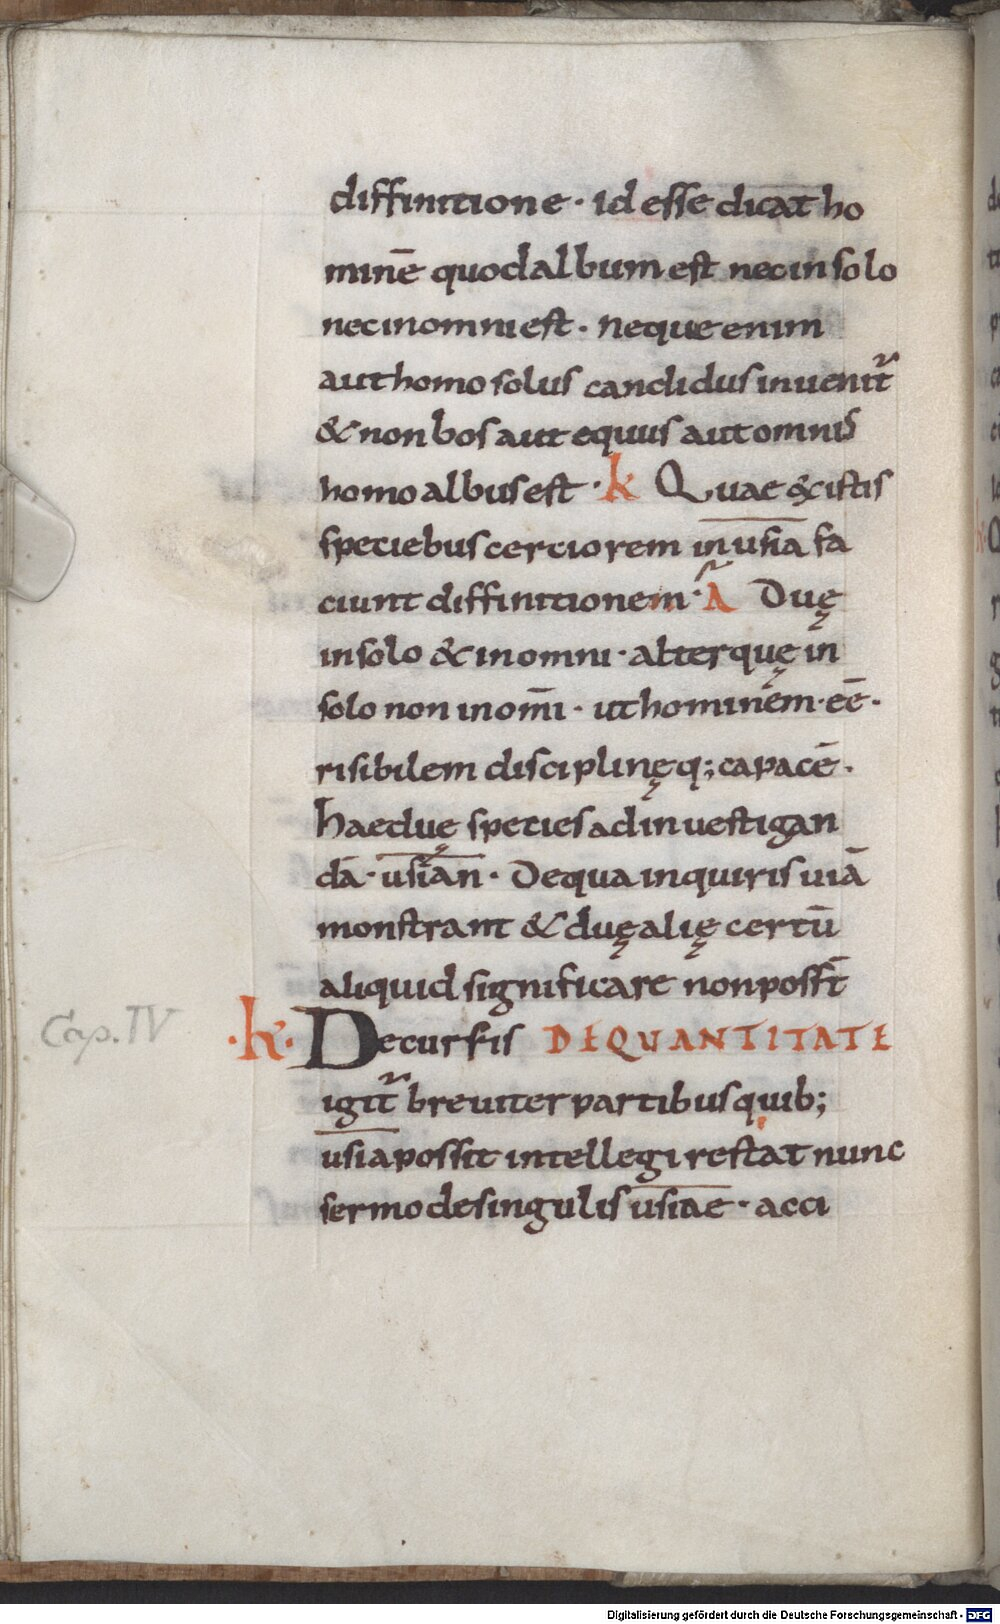 diffinitione · id esse dicat ho
minē quod album est nec in solo
nec in omni est · neque enim
aut homo solus candidus inuenit᷑
& non bos aut equus aut omnis
homo albus est · k Quae ex istis
speciebus certiorem in usia fa
ciunt diffinitionem · A Duę
in solo & in omni · alterquę in
solo non in om̄i · ut hominem · eē ·
risibilem disciplinęq; capacē ·
haeduę species ad inuestigan
dā · usian · De qua inquiris uiā
monstrant & duę alię certū
aliquid significare non poss̄t
Cap. IV · k · Decursis DE QUANTITATE
igit᷑ breuiter partibus quib;
usia possit intellegi restat nunc
sermo de singulis usiae · acci
Digitalisierung gefördert durch die Deutsche Forschungsgemeinschaft - DFG